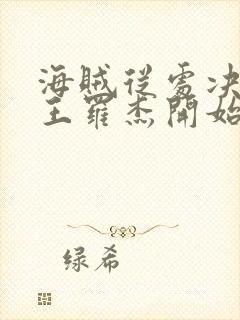 海賊從處决
王羅杰開始
绿希